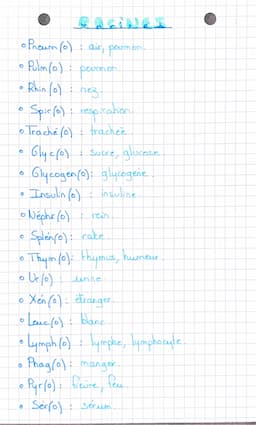 RACINES
Pneum(o) : air, poumon.
Pulm(o) : poumon.
Rhin(o) : nez.
Spir(o) : respiration.
Traché(o) : trachée.
Glyc(o) : sucre, glucose.
Glycogen(o) : glycogène.
Insulin(o) : insuline.
Néphr(o) : rein.
Splén(o) : rate.
Thym(o) : thymus, humeur.
Ur(o) : urine.
Xén(o) : étranger.
Leuc(o) : blanc.
Lymph(o) : lymphe, lymphocyte.
Phag(o) : manger.
Pyr(o) : fièvre, feu.
Sér(o) : sérum.